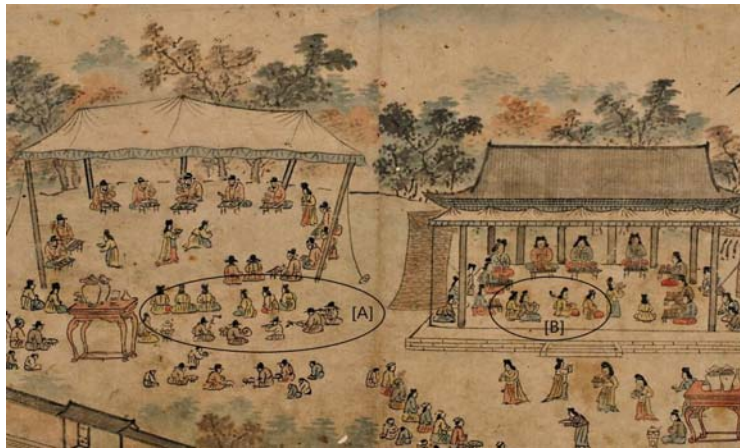 [A]
[B]